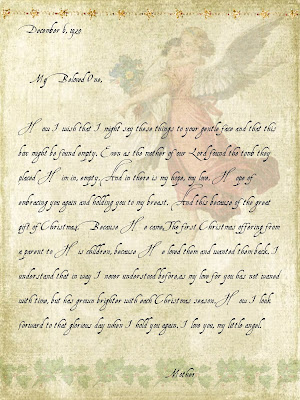 December 6, 1920
My Beloved One,
How I wish that I might say these things to your gentle face and that this
box might be found empty. Even as the mother of our Lord found the tomb they
placed Him in, empty. And in there is my hope, my love. Hope of
embracing you again and holding you to my breast. And this because of the great
gift of Christmas. Because He came. The first Christmas offering from
a parent to His children, because He loved them and wanted them back. I
understand that in way I never understood before, as my love for you has not waned
with time, but has grown brighter with each Christmas season. How I look
forward to that glorious day when I hold you again. I love you, my little angel.
Mother